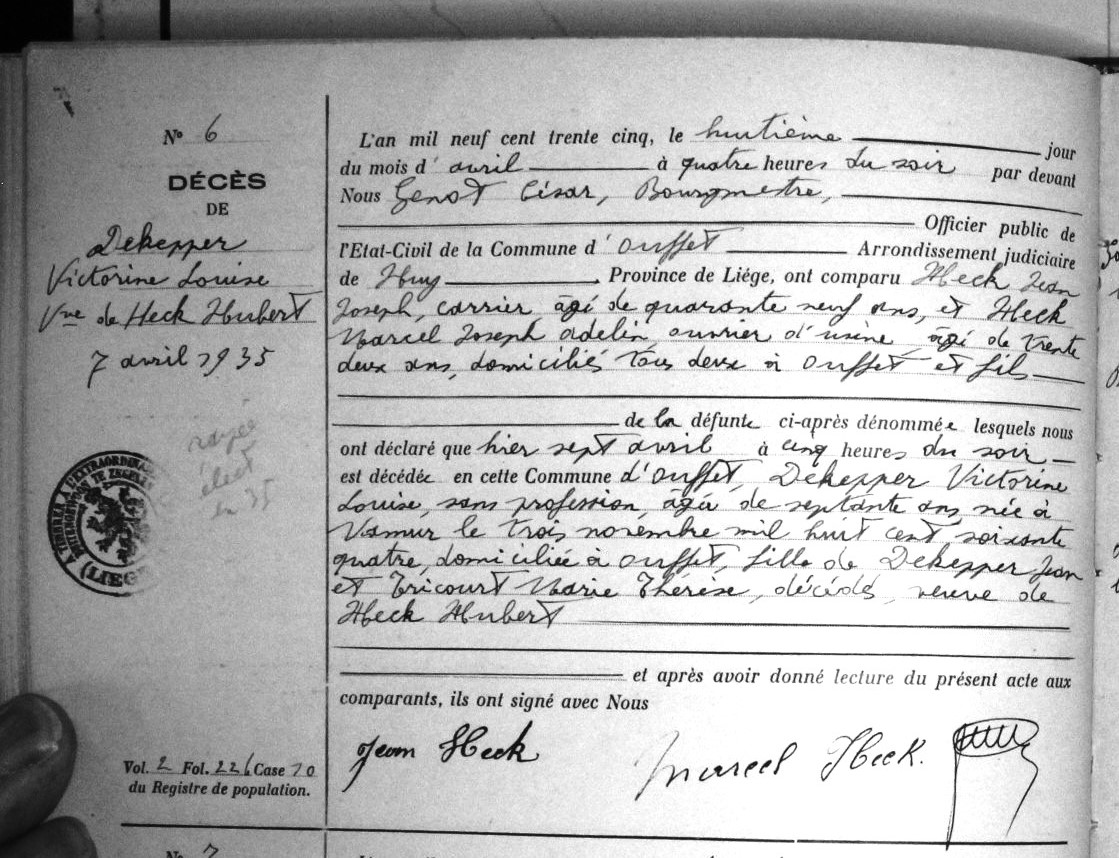 N° 6
DÉCÈS
DE
Dekepper
Victorine Louise
Vve de Heck Hubert
7 avril 1935
rayée
élect
en 35
(LIÉGE)
Vol. 2 Fol. 226 Case 10
du Registre de population.
L'an mil neuf cent trente cinq, le huitième jour
du mois d' avril à quatre heures du soir par devant
Nous Genot César, Bourgmestre,
Officier public de
l'Etat-Civil de la Commune d' Ouffet Arrondissement judiciaire
de Huy, Province de Liége, ont comparu Heck Jean
Joseph, carrier, âgé de quarante neuf ans, et Heck
Marcel Joseph Adelin, ouvrier d'usine âgé de trente
deux ans, domiciliés tous deux à Ouffet et fils
de la défunte ci-après dénommée lesquels nous
ont déclaré que hier sept avril à cinq heures du soir
est décédée en cette Commune d'Ouffet, Dekepper Victorine
Louise, sans profession, âgée de septante ans, née à
Namur le trois novembre mil huit cent soixante
quatre, domiciliée à Ouffet, fille de Dekepper Jean
et Tricourt Marie Thérèse, décédés, veuve de
Heck Hubert
et après avoir donné lecture du présent acte aux
comparants, ils ont signé avec Nous
Jean Heck
Marcel Heck.
N° 7